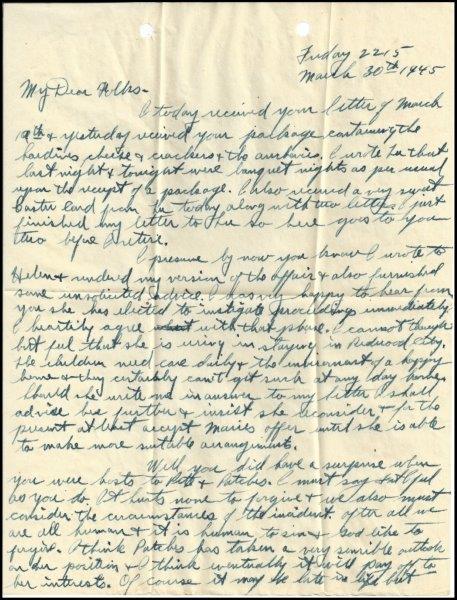 Friday 2215
March 30th 1945
My Dear Folks-
I today received your letter of March
19th & yesterday received your package containing the
sardines, cheese & crackers & the anchovies. I wrote Lu that
last night & tonight were banquet nights as per usual
upon the receipt of a package. I also received a very sweet
Easter card from Lu today along with two letters. I just
finished my letter to Lu so here goes to you
two before I retire.
I presume by now you know I wrote to
Helen & my version of the affair & also furnished
some unsolicited advice. I was very happy to hear from
you she has elected to instigate proceedings immediately.
I heartily agree with that phase. I cannot though
but feel that she is wrong in staying in Redwood City.
The children need care daily & the of a happy
home & they certainly can't get such at any day home.
Should she write me in answer to my letter I shall
advise her further & insist she reconsider & for the
present at least accept Maries offer until she is able
to make more suitable arrangements.
Well you did have a surprise when
you were hosts to & Patches. I must say I feel
as you do. It hurts none to forgive & we also must
consider the circumstances of the incident. After all we
are all human & it is human to sin & God like to
forgive. I think Patches has taken a very sensible outlook
on her position & I think eventually it will pay off to
her interests. Of course it may be late in life but